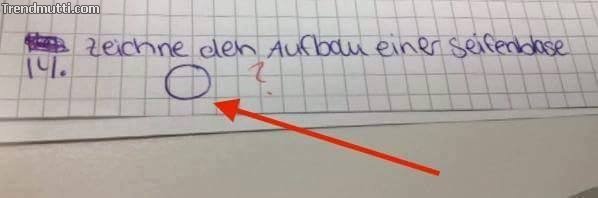 Trendmutti.com
Zeichne den Aufbau einer Seifenblase
14.
?